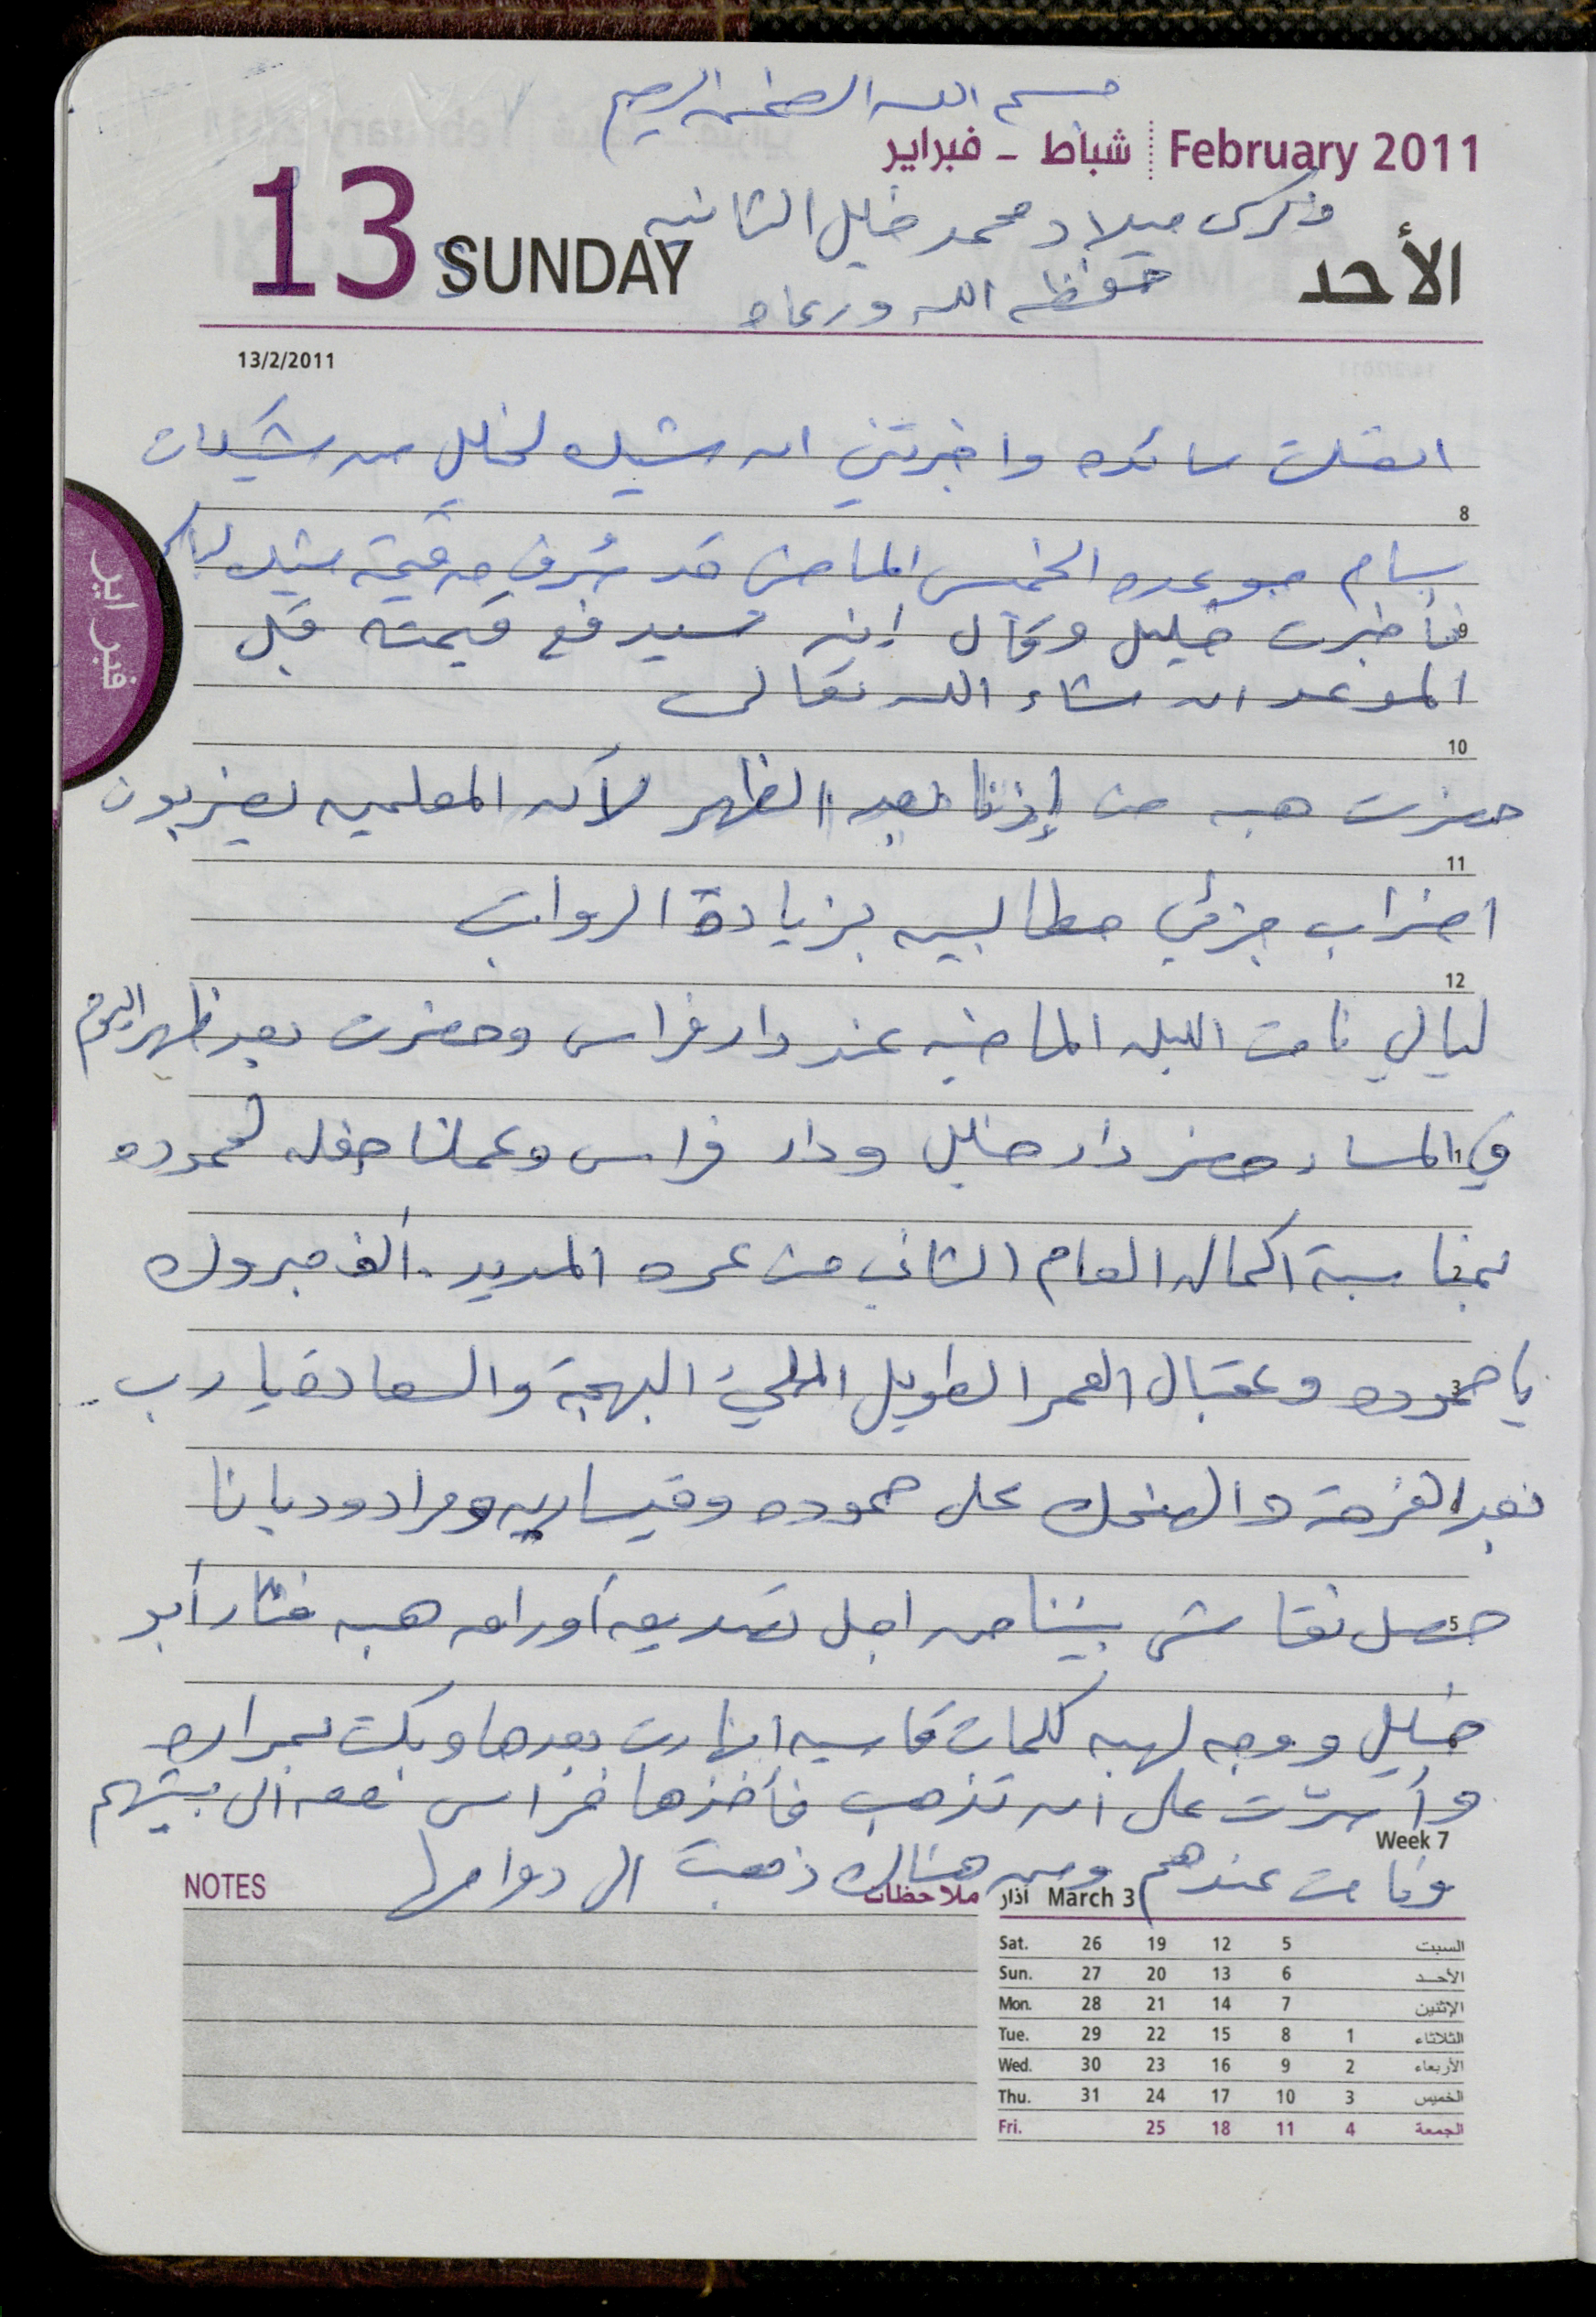 بسم الله الرحمن الرحيم
February 2011 شباط - فبراير
ذكرى ميلاد محمد خليل الثانيه
13 SUNDAY الأحد
حفظه الله ورعاه
13/2/2011
اتصلت سائده واخبرتني ان شيك لخليل من شيكات
8
بسام موعده الخميس الماضي قد قيمة شيك
9
فأخبرت خليل وقال إنه سيدفع قيمته قبل
الموعد ان شاء الله تعالى
10
فبراير
حضرت هبه من إذنا بعد الظهر لأن المعلمين يضربون
11
اضراب جزئي مطالبين بزيادة الرواتب
12
ليالي نامت الليله الماضيه عند دار فراس وحضرت بعد ظهر اليوم
1
في المساء حضر دار خليل ودار فراس وعملنا حفله لحموده
2
بمناسبة اكمال العام الثاني من عمره المديد. ألف مبروك
3
يا حموده وعقبال العمر الطويل المليء البهجة والسعادة يا رب
بعد الفرحة والضحك على حموده وقيساريه ومراد وديانا
5
حصل نقاش بيننا من اجل تصديق أوراق هبه فثار أبو
خليل ووجه لهبه كلمات قاسيه انهارت بعدها وبكت بمراره
وأصرّت على ان تذهب فأخذها فراس معه الى بيتهم
Week 7
ونامت عندهم ومن هناك ذهبت الى دوامها
NOTES ملاحظات
آذار March 3
Sat. 26 19 12 5 السبت
Sun. 27 20 13 6 الأحد
Mon. 28 21 14 7 الإثنين
Tue. 29 22 15 8 1 الثلاثاء
Wed. 30 23 16 9 2 الأربعاء
Thu. 31 24 17 10 3 الخميس
Fri. 25 18 11 4 الجمعة